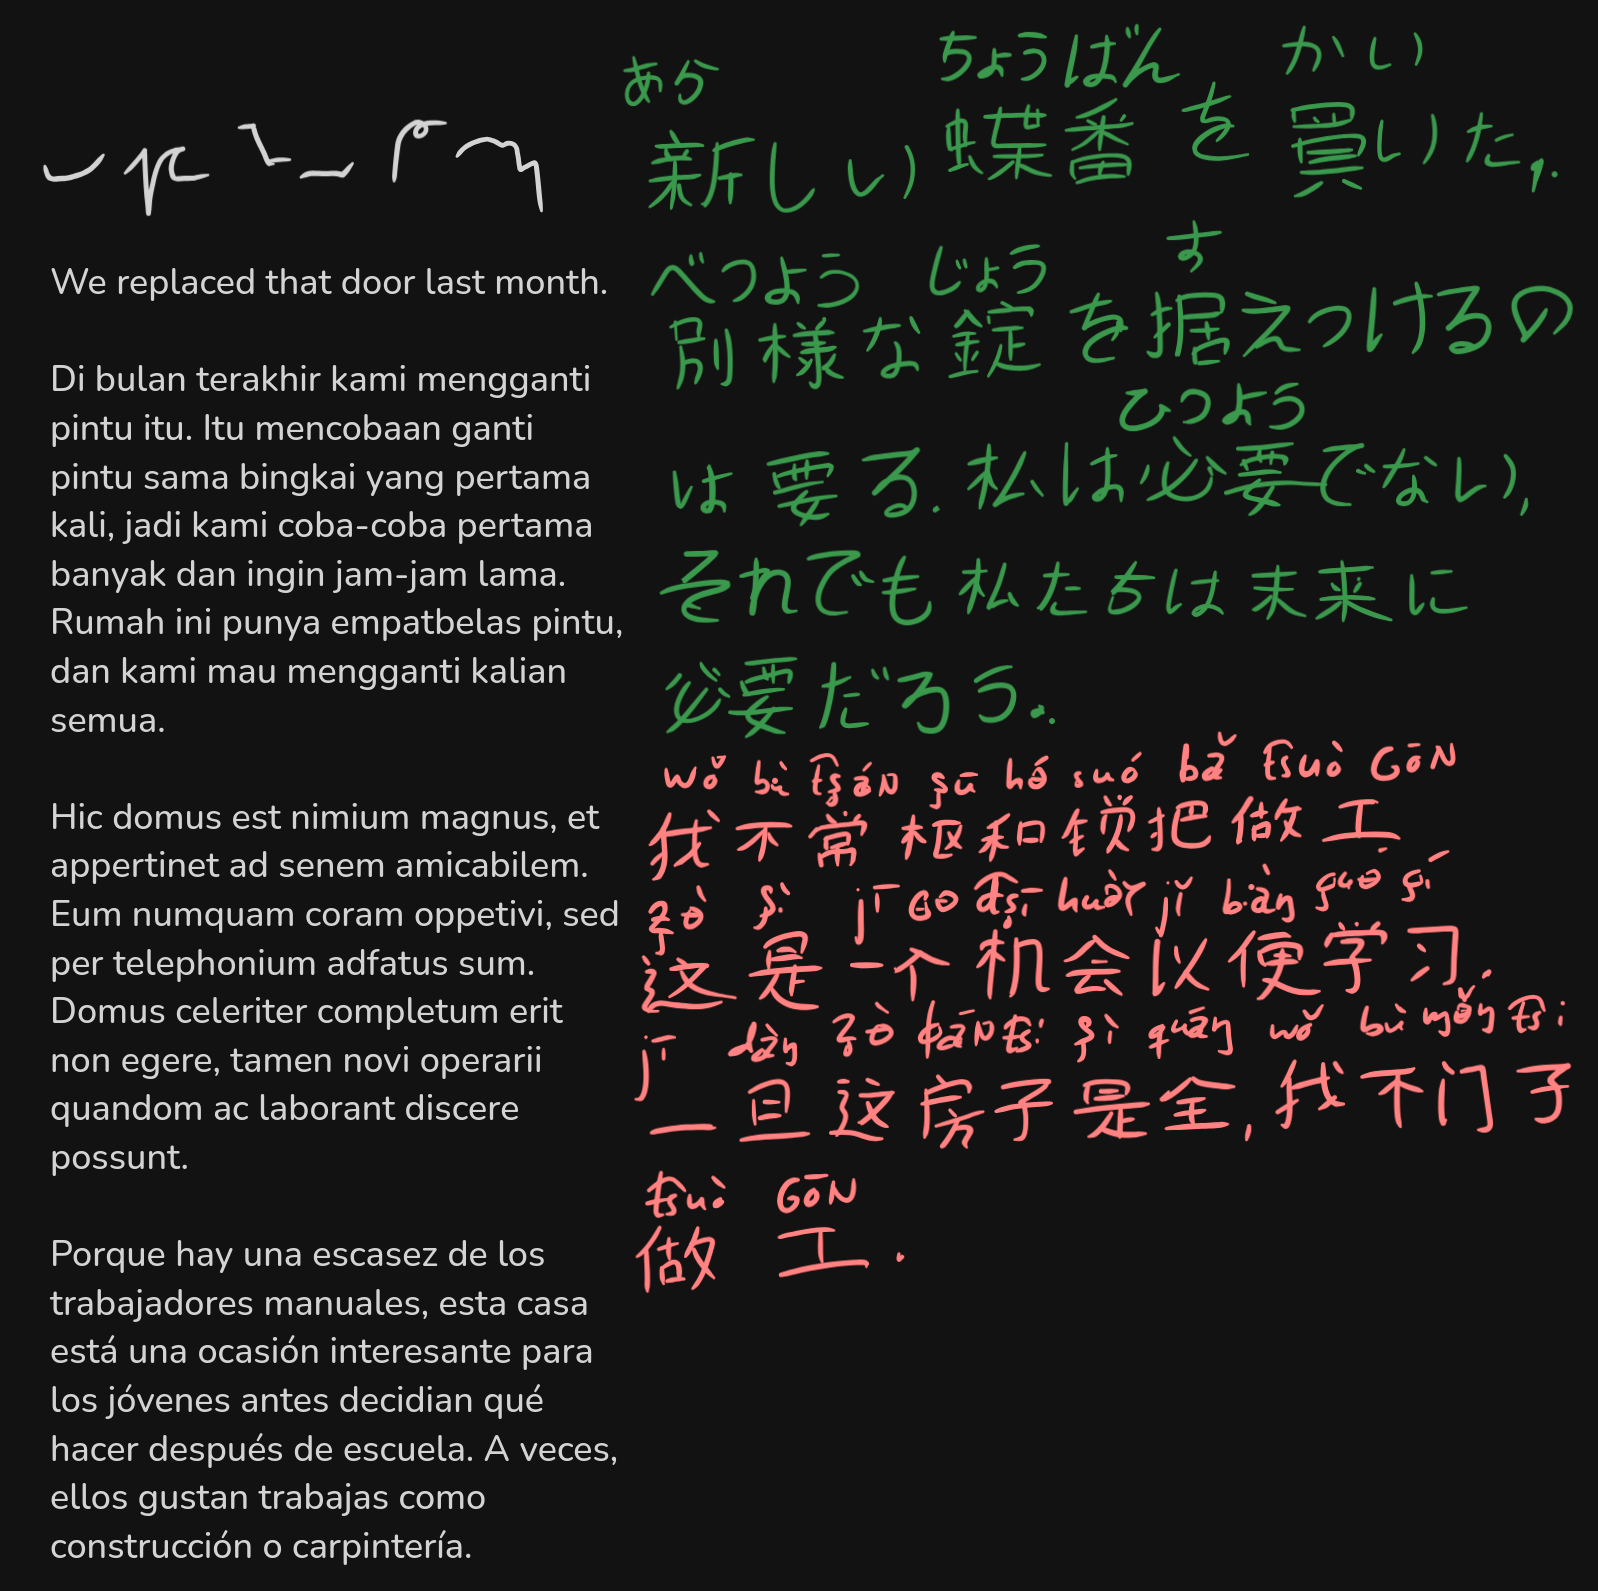 We replaced that door last month.
Di bulan terakhir kami mengganti
pintu itu. Itu mencobaan ganti
pintu sama bingkai yang pertama
kali, jadi kami coba-coba pertama
banyak dan ingin jam-jam lama.
Rumah ini punya empatbelas pintu,
dan kami mau mengganti kalian
semua.
Hic domus est nimium magnus, et
appertinet ad senem amicabilem.
Eum numquam coram oppetivi, sed
per telephonium adfatus sum.
Domus celeriter completum erit
non egere, tamen novi operarii
quandom ac laborant discere
possunt.
Porque hay una escasez de los
trabajadores manuales, esta casa
está una ocasión interesante para
los jóvenes antes decidian qué
hacer después de escuela. A veces,
ellos gustan trabajas como
construcción o carpintería.
ちょうばん かい
新しい蝶番を買いた,.
べつよう じょう す
別様な錠を据えつけるの
ひつよう
は要る. 私は必要でない,
それでも私たちは未来に
必要だろう..
我不常枢和锁把做工
这是一个机会以便学习.
一旦这房子是全, 我不门子
做工.